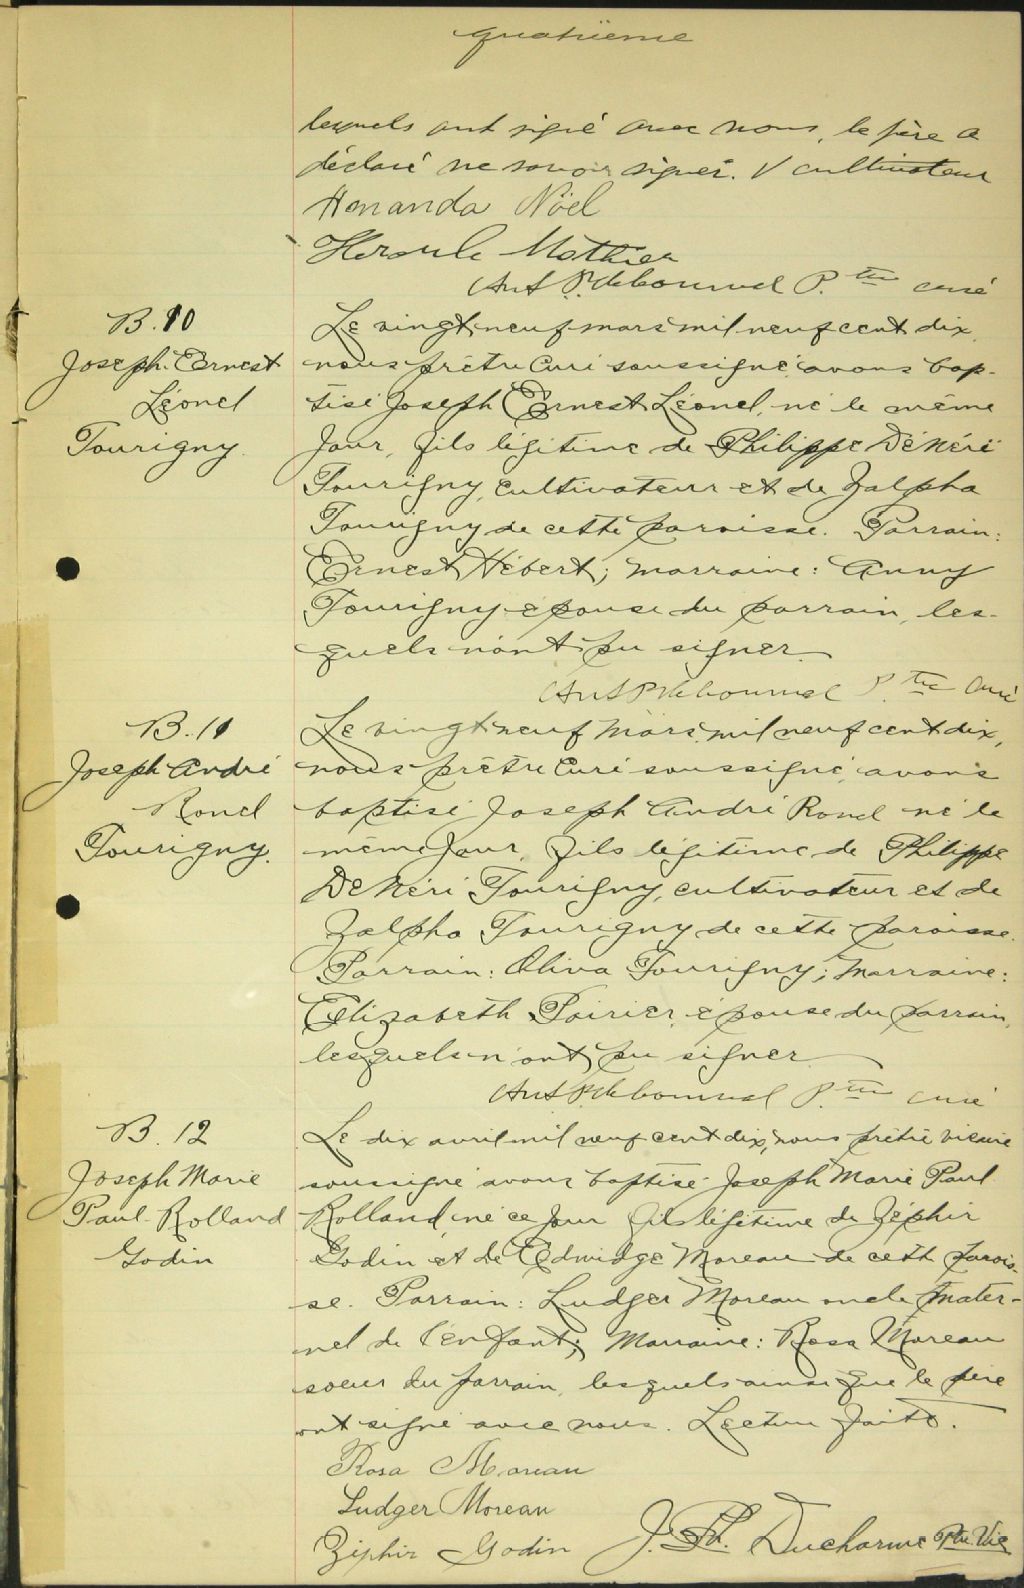 quatrième
lesquels ont signé avec nous, le père a
déclaré ne savoir signer. V cultivateur
Amanda Nöel
Hersule Mathier
Ant. P. ptre curé
B. 10
Joseph. Ernest
Léonel
Tourigny.
Le vingt neuf mars mil neuf cent dix,
nous prêtre Curé soussigné, avons bap-
tisé Joseph Ernest Léonel, né le même
jour, fils légitime de Philippe Dénéri
Tourigny, cultivateur et de Zalpha
Tourigny de cette paroisse. Parrain:
Ernest Hébert; marraine: Anny
Tourigny épouse du parrain, les-
quels n'ont pu signer.
Ant P. P. tre curé
B. 11
Joseph André
Ronel
Tourigny.
Le vingt neuf mars mil neuf cent dix,
nous prêtre Curé soussigné, avons
baptisé Joseph André Ronel né le
même jour, fils légitime de Philippe
Dénéri Tourigny, cultivateur et de
Zalpha Tourigny de cette paroisse.
Parrain: Oliva Tourigny; marraine:
Elizabeth Poirier, épouse du parrain,
lesquels n'ont pu signer
Ant P. P. tre curé
B. 12
Joseph Marie
Paul-Rolland
Godin
Le dix avril mil neuf cent dix, nous prêtre vicaire
soussigné avons baptisé Joseph Marie Paul
Rolland né ce jour fils légitime de Zéphir
Godin et de Edwidge Moreau de cette parois-
se. Parrain: Ludger Moreau oncle mater-
nel de l'enfant; Marraine: Rosa Moreau
soeur du parrain, lesquels ainsi que le père
ont signé avec nous. Lecture faite.
Rosa Moreau
Ludger Moreau
Ziphir Godin
J. Ph. Ducharme Ptre. Vic